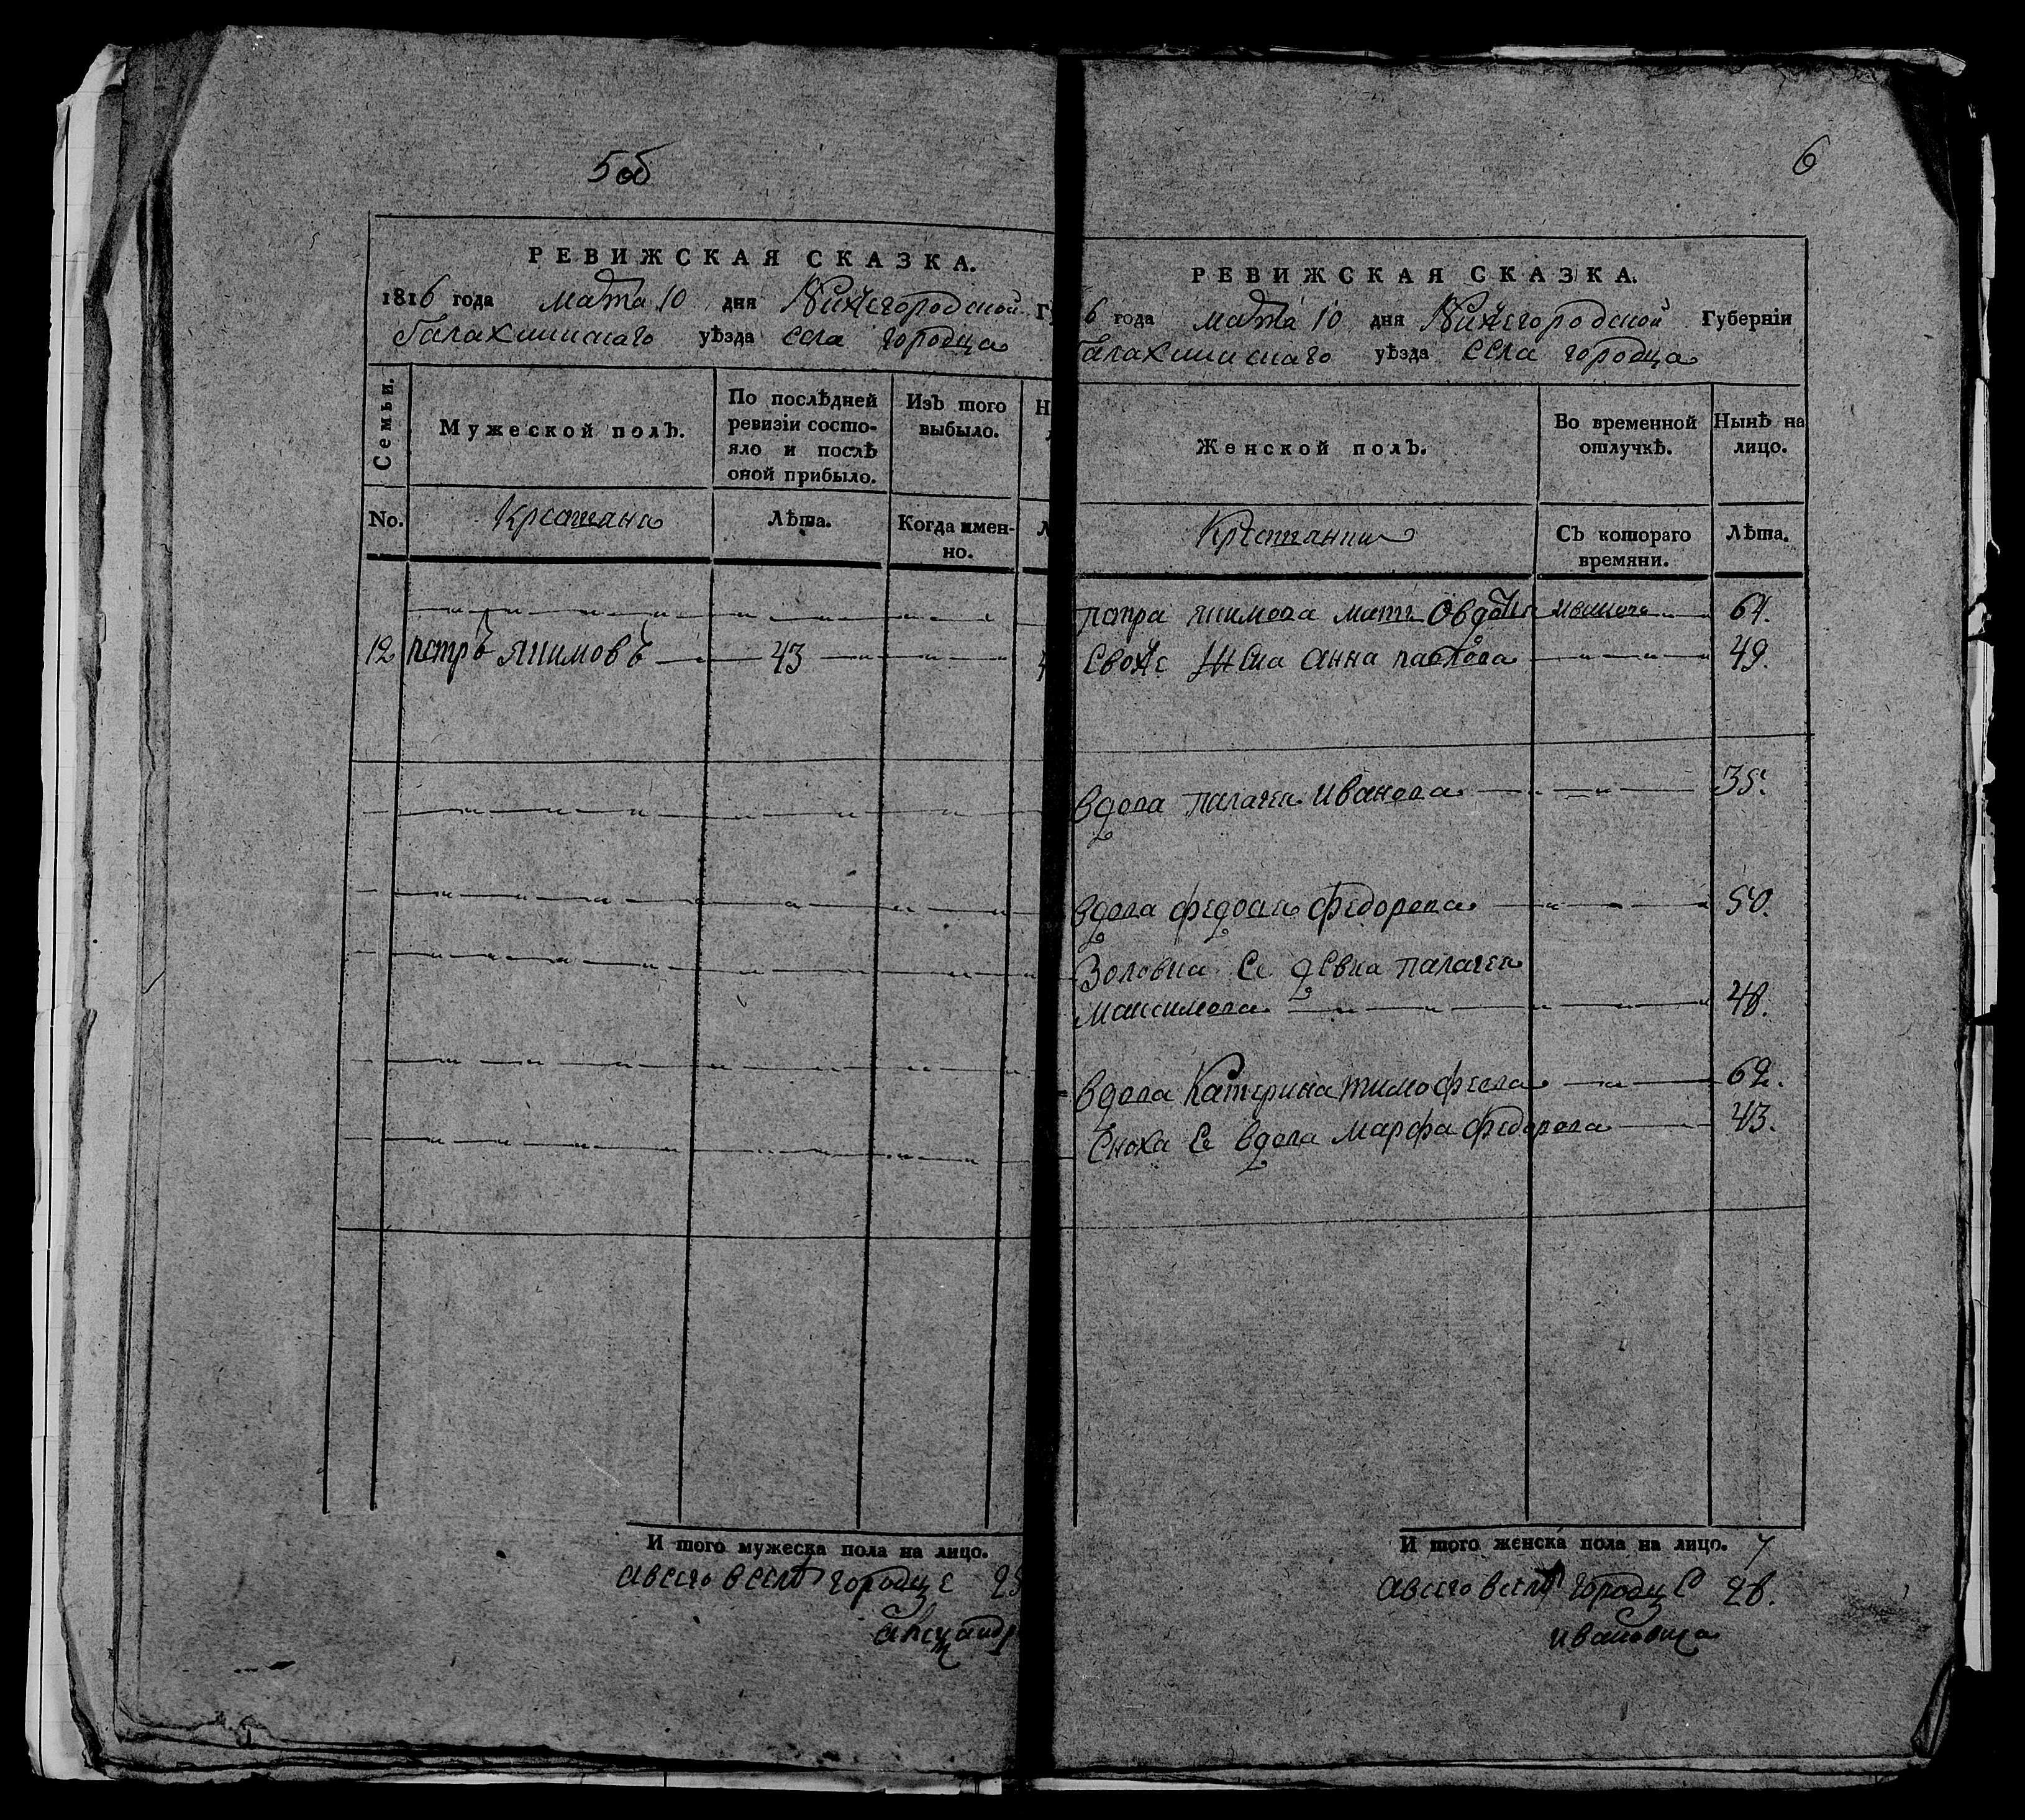 5об
РЕВИЖСКАЯ СКАЗКА.
1816 года марта 10 дня Нижегородской
Балахнинскаго уѣзда села городца
Семьи.
Мужеской полъ.
По послѣдней ревизіи состояло и послѣ оной прибыло.
Изъ того выбыло.
No.
Крестьяне
Лѣта.
Когда именно.
12 петръ якимовъ 43
И того мужеска пола на лицо.
авсего вселѣ городце
6
РЕВИЖСКАЯ СКАЗКА.
6 года марта 10 дня Нижегородской Губерніи
Балахнинскаго уѣзда села городца
Женской полъ.
Во временной отлучкѣ.
Нынѣ на лицо.
Крестьянки
Съ котораго времяни.
Лѣта.
петра якимова мать Овдотья 64.
Евоже жена анна павлова 49.
вдова палагея иванова 35.
вдова федосья федорова 50.
Золовка Ее девка палагея
максимова 48.
вдова Катерина тимофеева 62.
Сноха Ее вдова марфа федорова 43.
И того женска пола на лицо. 7
авсего вселѣ городце 28.